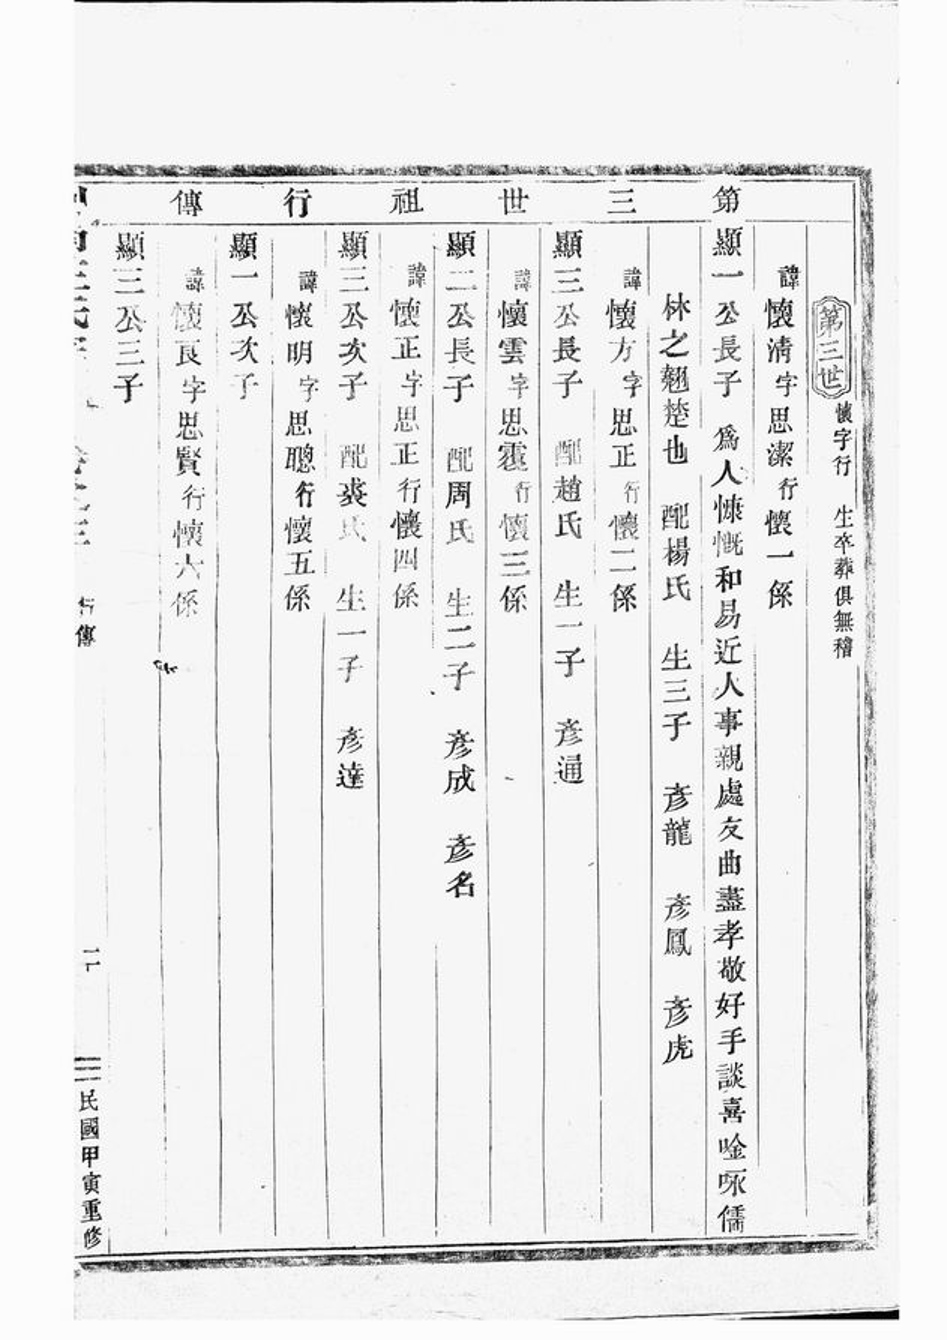 第三世祖行傳
第三世 懷字行 生卒葬俱無稽
諱懷淸字思潔行懷一係
顯一公長子 爲人慷慨和易近人事親處友曲盡孝敬好手談喜唫咏儒
林之翹楚也 配楊氏 生三子 彥龍 彥鳳 彥虎
諱懷方字思正行懷二係
顯三公長子 配趙氏 生一子 彥通
諱懷雲字思霱行懷三係
顯二公長子 配周氏 生二子 彥成 彥名
諱懷正字思正行懷四係
顯三公次子 配裘氏 生一子 彥達
諱懷明字思聰行懷五係
顯一公次子
諱懷良字思賢行懷六係
顯三公三子
行傳
民國甲寅重修